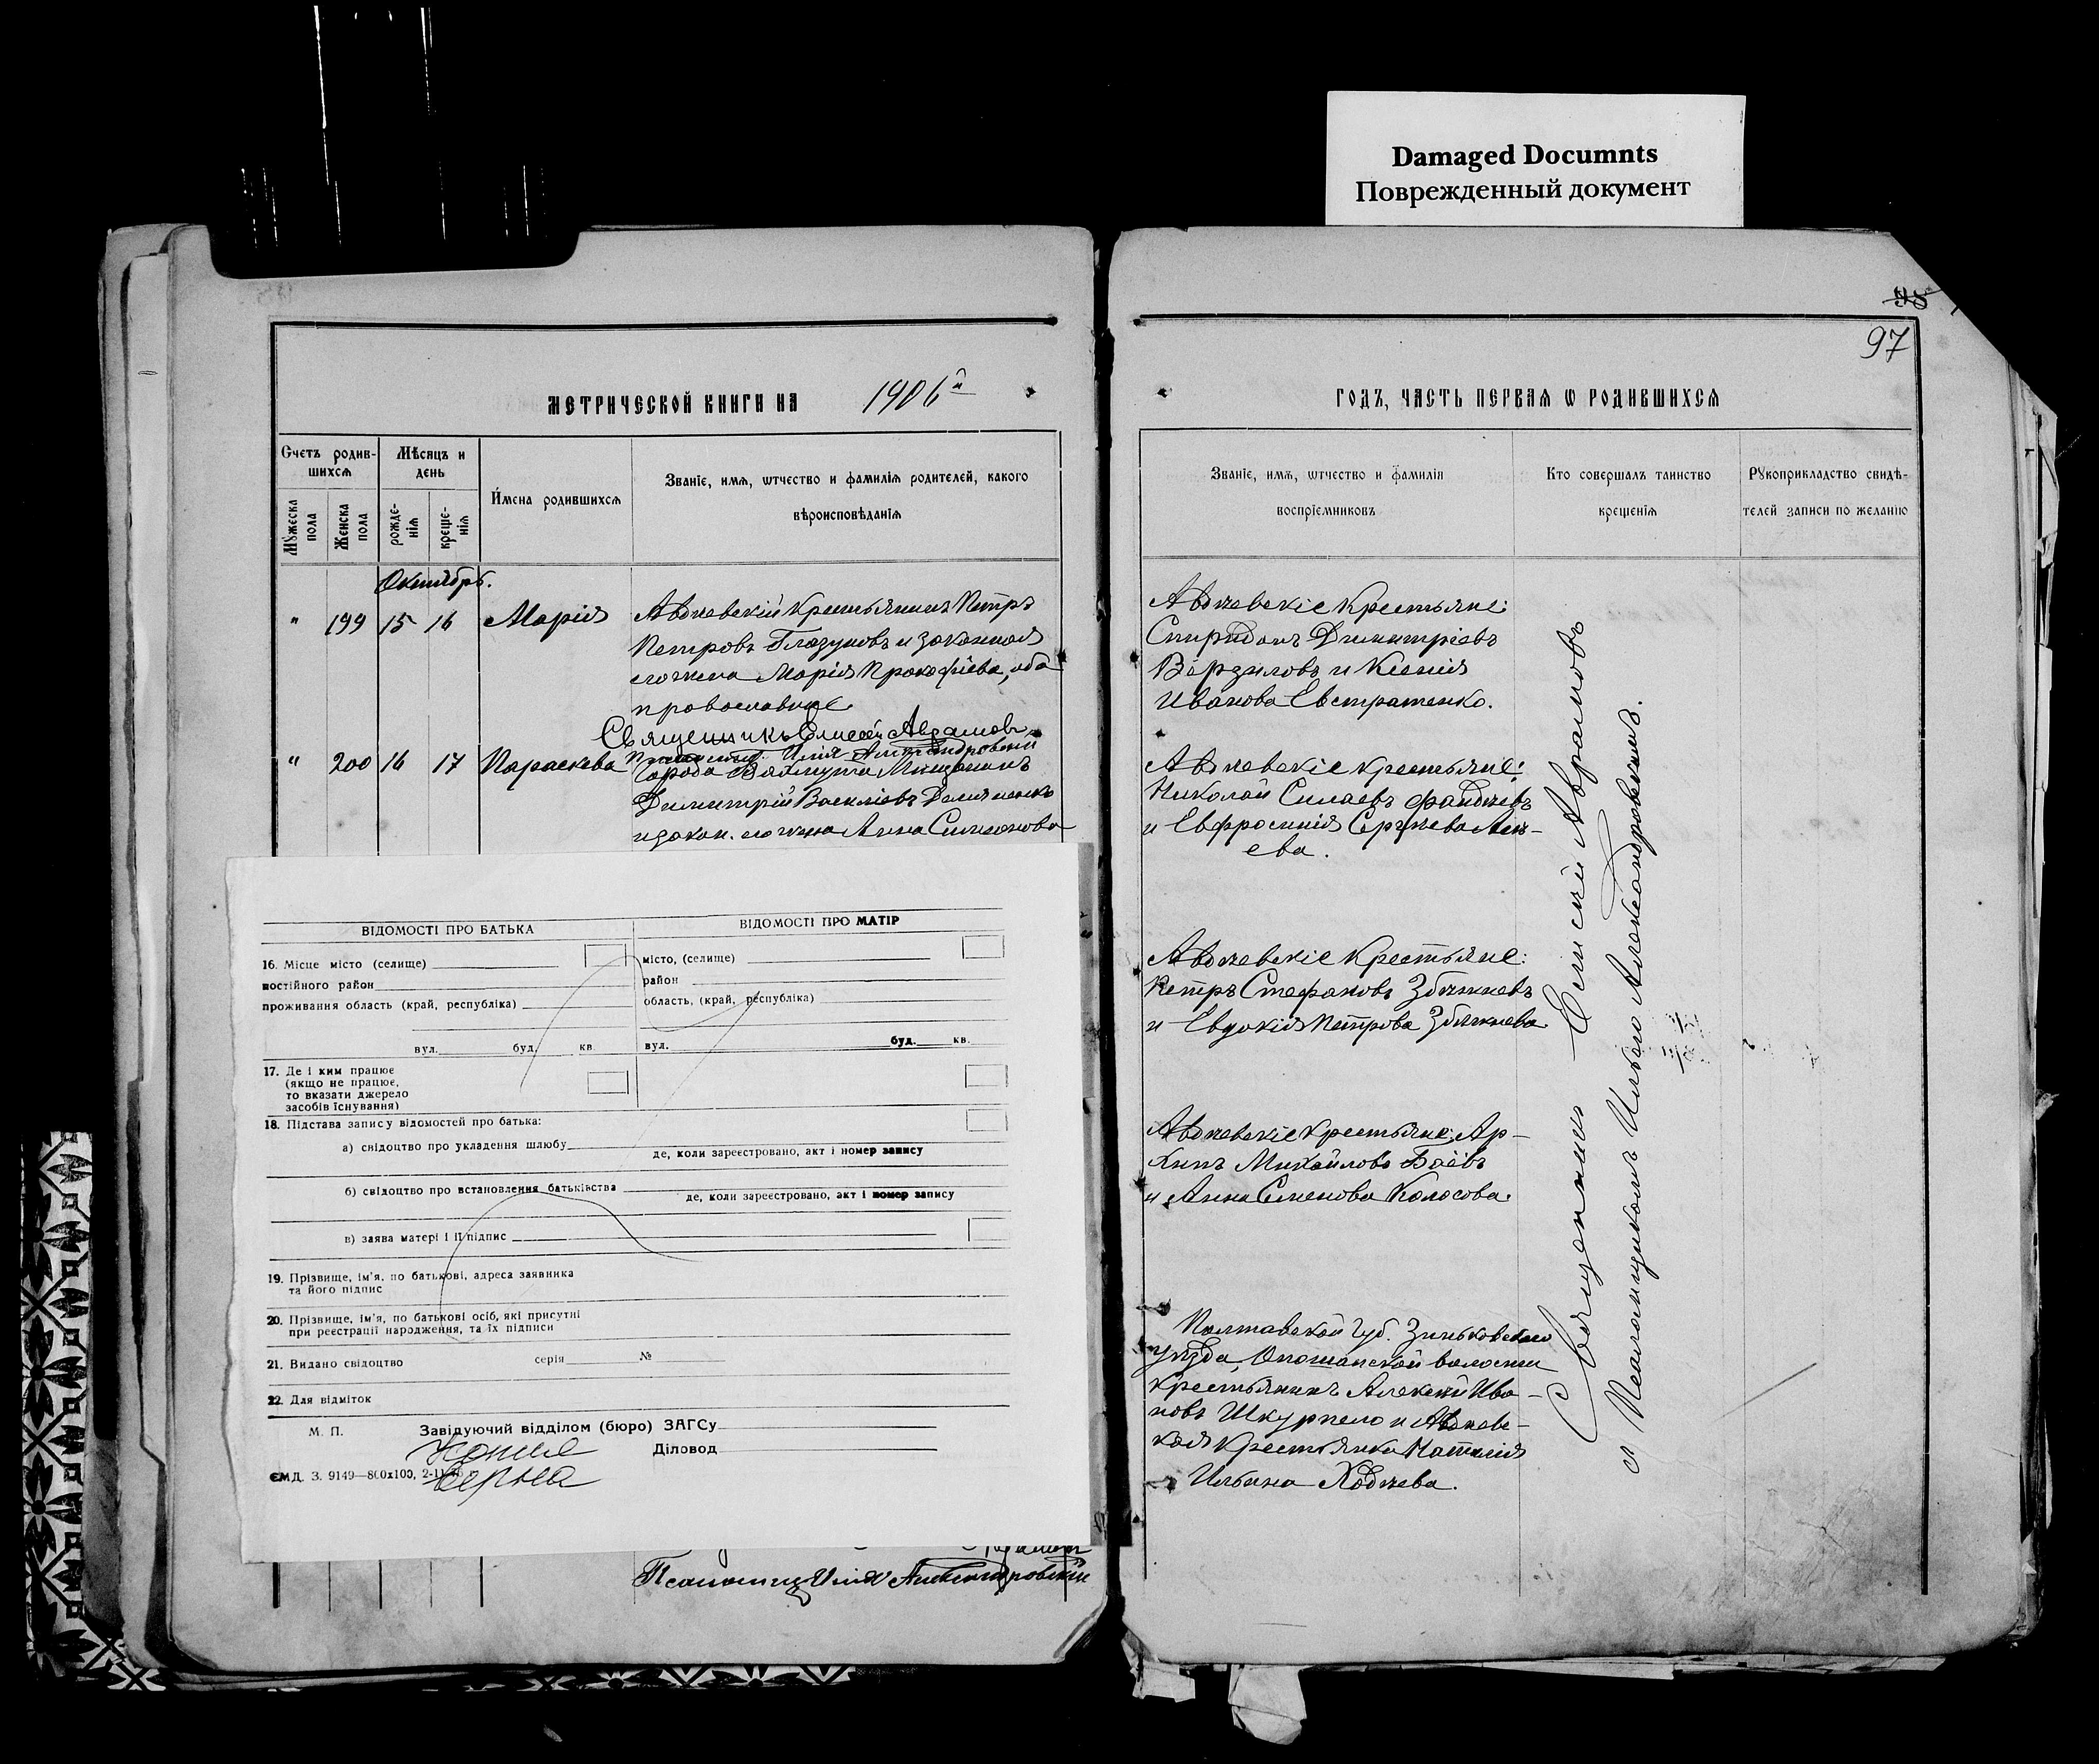 Damaged Documnts
Поврежденный документ
98
97
МЕТРИЧЕСКОЙ КНИГИ НА 1906й
ГОДЪ, ЧАСТЬ ПЕРВАЯ Ѡ РОДИВШИХСЯ
Счетъ родив-
шихся
Мѣсяцъ и
день
Имена родившихся
Званіе, имя, ѿчество и фамилія родителей, какого
вѣроисповѣданія
Мужеска
пола
Женска
пола
рожде-
нія
креще-
нія
Званіе, имя, ѿчество и фамилія
воспріемниковъ
Кто совершалъ таинство
крещенія
Рукоприкладство свидѣ-
телей записи по желанію
Октябрь.
" 199 15 16 Марія Авдѣевскій крестьянинъ Петръ
Петровъ Глазуновъ и законная
его жена Марія Прокофіева, оба
православные
Священникъ Елисей Аврамовъ
Псаломщ. Илія Александровскій
" 200 16 17 Параскева Города Бахмута Мѣщанинъ
Димитрій Васильевъ
и закон. его жена Анна Симонова
Авдѣевскіе крестьяне:
Спиридонъ Димитріевъ
Верзиловъ и Ксенія
Иванова Евстратенко.
Авдѣевскіе крестьяне:
Николай Силаевъ
и Евфросинія Сергѣева
ева.
Авдѣевскіе крестьяне:
Петръ Стефановъ Збѣжневъ
и Евдокія Петрова Збѣжнева.
Авдѣевскіе крестьяне: Ар-
хипъ Михайловъ Баевъ
и Анна Семенова Колосова.
Полтавской губ. Зиньковскаго
уѣзда, Опошанской волости
крестьянинъ Алексѣй Ива-
новъ Шкурпело и Авдѣев-
ская крестьянка Наталія
Ильина Ходѣева.
Священникъ Елисей Аврамовъ
съ Псаломщикомъ Ильею Александровскимъ.
ВІДОМОСТІ ПРО БАТЬКА
ВІДОМОСТІ ПРО МАТІР
16. Місце місто (селище)
місто, (селище)
постійного район
район
проживання область (край, республіка)
область, (край, республіка)
вул. буд. кв.
вул. буд. кв.
17. Де і ким працює
(якщо не працює,
то вказати джерело
засобів існування)
18. Підстава запису відомостей про батька:
а) свідоцтво про укладення шлюбу
де, коли зареєстровано, акт і номер запису
б) свідоцтво про встановлення батьківства
де, коли зареєстровано, акт і номер запису
в) заява матері і її підпис
19. Прізвище, ім'я, по батькові, адреса заявника
та його підпис
20. Прізвище, ім'я, по батькові осіб, які присутні
при реєстрації народження, та їх підписи
21. Видано свідоцтво серія №
22. Для відміток
М. П.
Завідуючий відділом (бюро) ЗАГСу
Діловод
ЄМД. З. 9149—800х100, 2-11
Псаломщ. Илія Александровскій